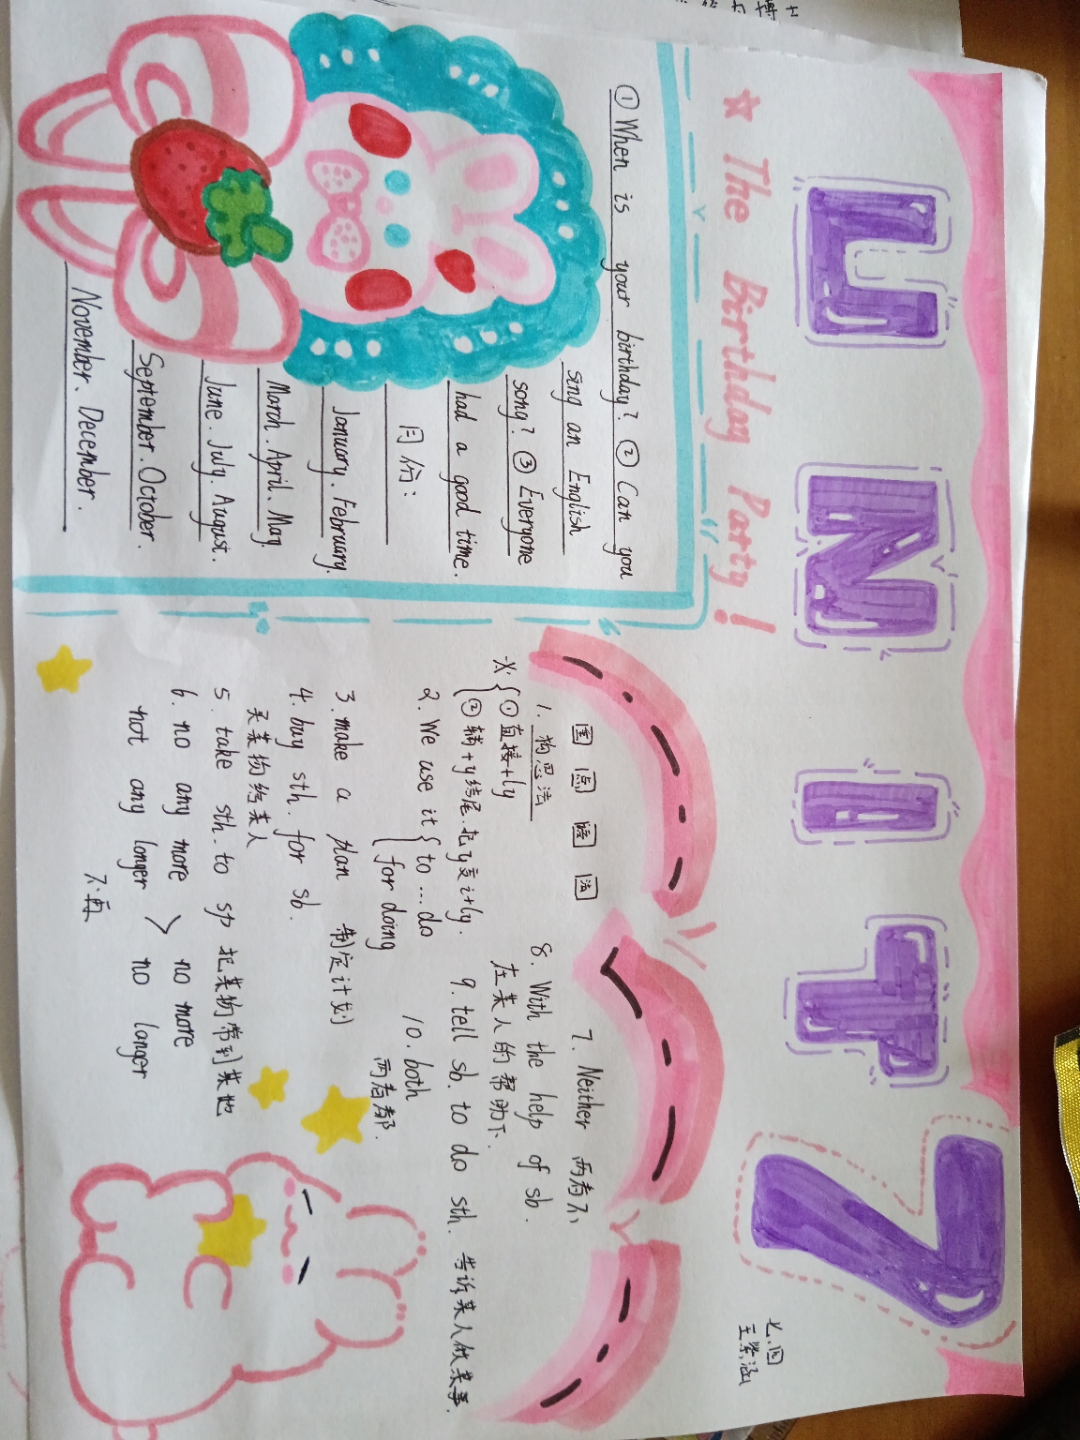 UNit 7
七.四
☆ The Birthday Party!
① When is your birthday? ② Can you
sing an English
song? ③ Everyone
had a good time.
月份:
January. February.
March. April. May.
June. July. August.
September. October.
November. December.
1. 构思法
※ ① 直接+ly
② 辅+y结尾.把y变i+ly.
2. We use it to ... do
for doing
3. make a plan 制定计划
4. buy sth. for sb.
买某物给某人
5. take sth. to sp 把某物带到某地
6. no any more > no more
not any longer no longer
不再
7. Neither 两者不
8. With the help of sb.
在某人的帮助下.
9. tell sb. to do sth. 告诉某人做某事.
10. both
两者都.